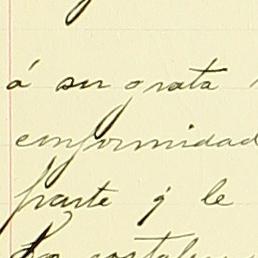 á su grata
conformidad
parte q́ le